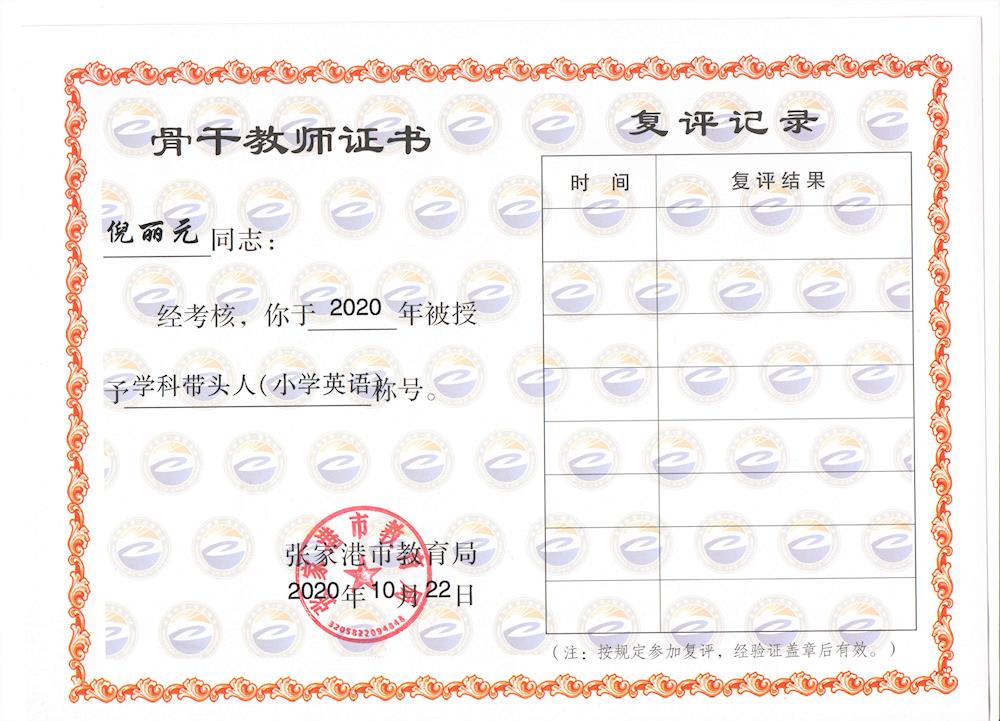 骨干教师证书
倪丽元同志：
经考核，你于 2020 年被授
予学科带头人(小学英语)称号。
张家港市教育局
2020年10月22日
张家港市教育局
3205822094846
复评记录
时 间 复评结果
（注：按规定参加复评，经验证盖章后有效。）